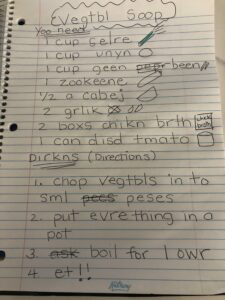 Vegtbl Soop
You need
1 cup Selre
1 cup unyn
1 cup geen pepr been
1 zookeene
1/2 a cabej
2 grlik
2 boxs chikn brth chikn broth
1 can disd tmato
Dirkns (Directions)
1. chop vegtbls in to
sml pees peses
2. put evre thing in a
pot
3. ask boil for 1 owr
4 et!!
Hilroy